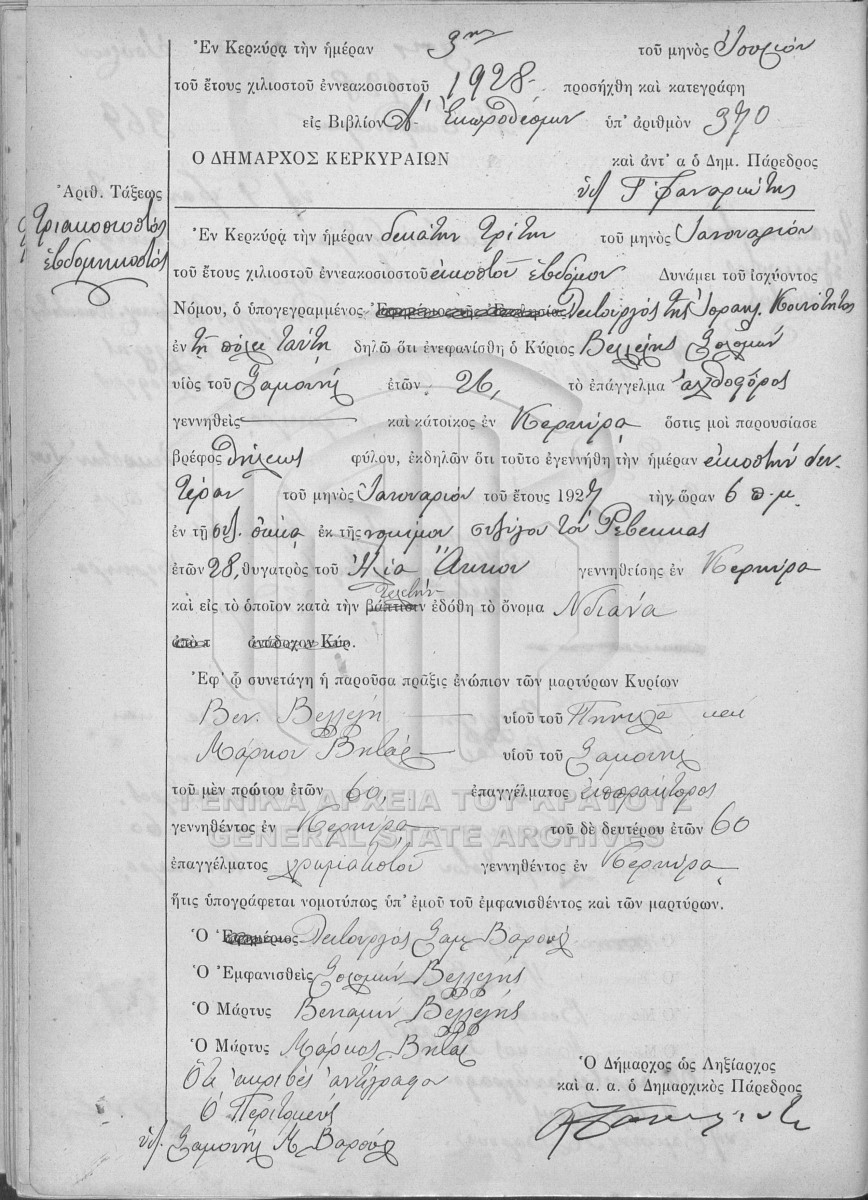 Ἐν Κερκύρᾳ τὴν ἡμέραν 3ης τοῦ μηνὸς Ἰουνίου
τοῦ ἔτους χιλιοστοῦ ἐννεακοσιοστοῦ 1928 προσήχθη καὶ κατεγράφη
εἰς Βιβλίον Α' Ἐκπροθέσμων ὑπ' ἀριθμὸν 370
Ο ΔΗΜΑΡΧΟΣ ΚΕΡΚΥΡΑΙΩΝ καὶ ἀντ' α ὁ Δημ. Πάρεδρος
Ἀριθ. Τάξεως
τριακοσιοστὸς
ἑβδομηκοστὸς
Ἐν Κερκύρᾳ τὴν ἡμέραν δεκάτην τρίτην τοῦ μηνὸς Ἰανουαρίου
τοῦ ἔτους χιλιοστοῦ ἐννεακοσιοστοῦ εἰκοστοῦ ἑβδόμου Δυνάμει τοῦ ἰσχύοντος
Νόμου, ὁ ὑπογεγραμμένος Λειτουργὸς τῆς Ἰσραηλ. Κοινότητος
ἐν τῇ πόλει ταύτῃ δηλῶ ὅτι ἐνεφανίσθη ὁ Κύριος Βελλέλης Σολομὼν
υἱὸς τοῦ Σαμουὴλ ἐτῶν 26, τὸ ἐπάγγελμα ἀχθοφόρος
γεννηθεὶς καὶ κάτοικος ἐν Κερκύρᾳ ὅστις μοι παρουσίασε
βρέφος θήλεως φύλου, ἐκδηλῶν ὅτι τοῦτο ἐγεννήθη τὴν ἡμέραν εἰκοστὴν δευ-
τέραν τοῦ μηνὸς Ἰανουαρίου τοῦ ἔτους 1927 τὴν ὥραν 6 π.μ.
ἐν τῇ οἰκίᾳ ἐκ τῆς νομίμου συζύγου του Ρεβέκκας
ἐτῶν 28, θυγατρὸς τοῦ Ἠλία Ἄκκου γεννηθείσης ἐν Κερκύρᾳ
καὶ εἰς τὸ ὁποῖον κατὰ τὴν βάπτισιν τελετὴν ἐδόθη τὸ ὄνομα Ντιάνα
ἀνάδοχον Κύρ.
Ἐφ' ᾧ συνετάγη ἡ παροῦσα πρᾶξις ἐνώπιον τῶν μαρτύρων Κυρίων
Βεν. Βελλέλη υἱοῦ τοῦ καὶ
Μάρκου Βητὰλ υἱοῦ τοῦ Σαμουὴλ
τοῦ μὲν πρώτου ἐτῶν 60, ἐπαγγέλματος εἰσπράκτορος
γεννηθέντος ἐν Κερκύρᾳ τοῦ δὲ δευτέρου ἐτῶν 60
ἐπαγγέλματος γεννηθέντος ἐν Κερκύρᾳ
ἥτις ὑπογράφεται νομοτύπως ὑπ' ἐμοῦ τοῦ ἐμφανισθέντος καὶ τῶν μαρτύρων.
Ὁ Ἐφημέριος Λειτουργὸς Σαμ. Βαροὺχ
Ὁ Ἐμφανισθεὶς Σολομὼν Βελλέλης
Ὁ Μάρτυς Βενιαμὴν Βελλέλης
Ὁ Μάρτυς Μάρκος Βητὰλ
Ὁ Δήμαρχος ὡς Ληξίαρχος
καὶ α. α. ὁ Δημαρχικὸς Πάρεδρος
Σαμουὴλ Μ. Βαροὺχ
ΓΕΝΙΚΑ ΑΡΧΕΙΑ ΤΟΥ ΚΡΑΤΟΥΣ
GENERAL STATE ARCHIVES